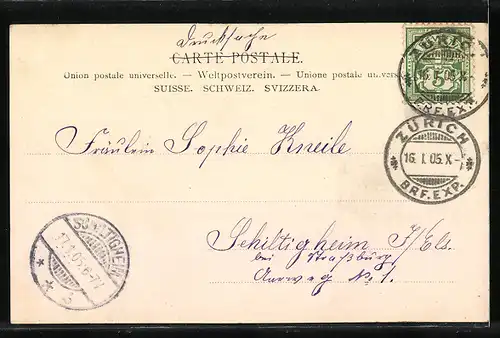 Drucksache
CARTE POSTALE.
Union postale universelle. — Weltpostverein. — Unione postale
SUISSE. SCHWEIZ. SVIZZERA.
ZÜRICH
16. I. 05. X-
BRF. EXP.
5
ZÜRICH
16. I. 05. X-
BRF. EXP.
Fräulein Sophie Kneile
SCHILTIGHEIM
17.1.05. 6-7V
Schiltigheim I/Els.
bei Straßburg
Auweg No. 1.